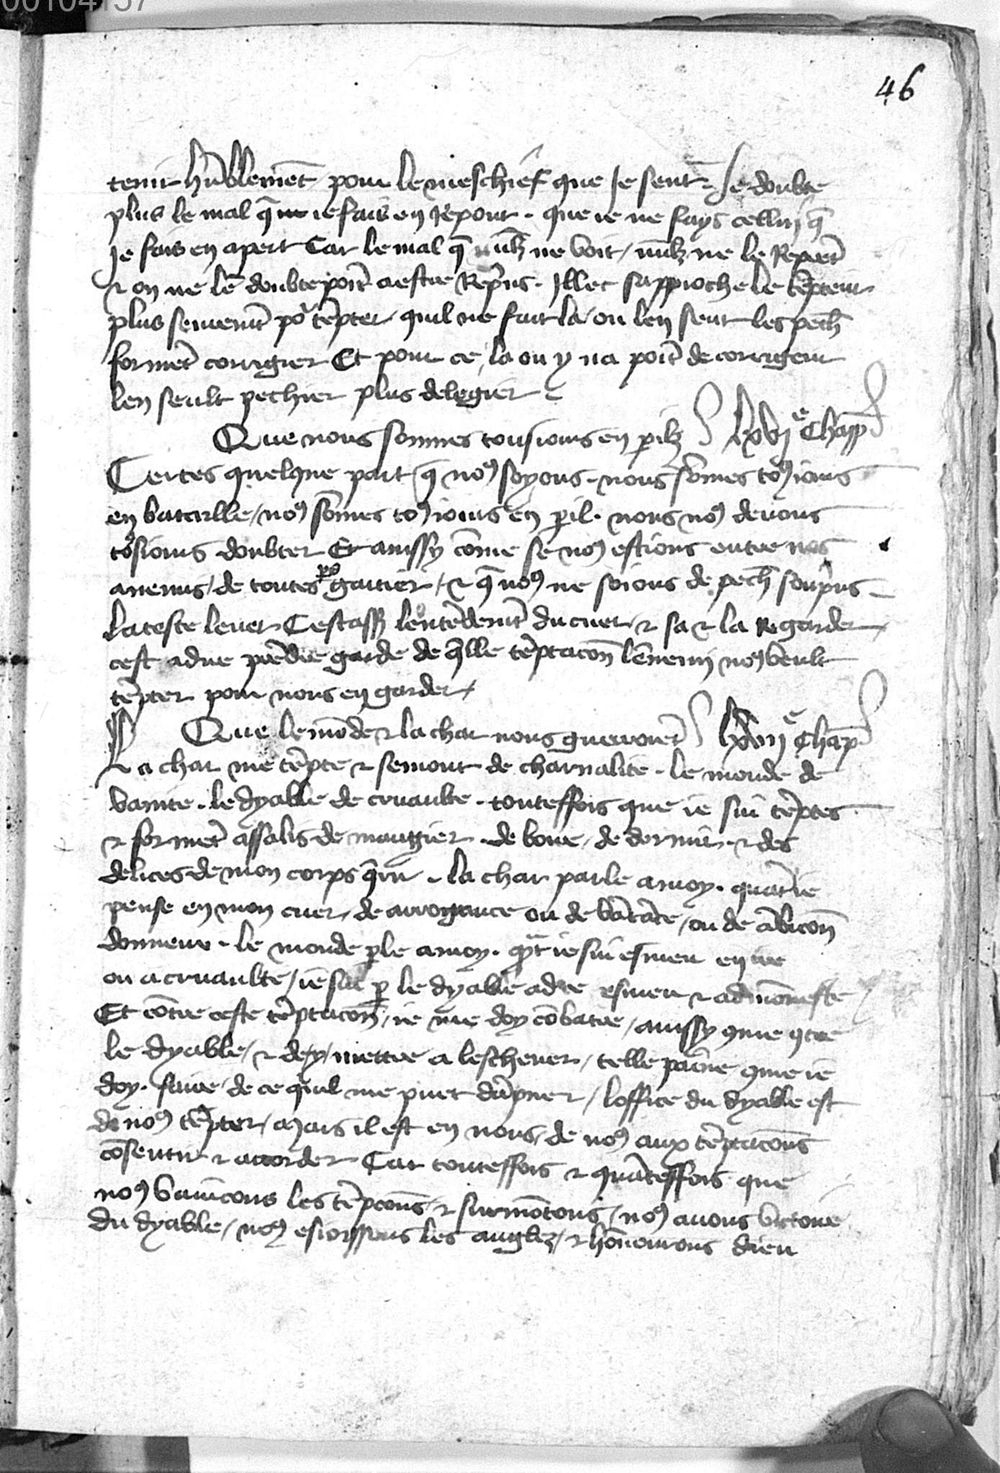 00104137
46
tenir hũblemẽt pour le meschief que Je sent. Je doubte
plus le mal q̃ ie fais en Repont. que ie ne fays celluy q̃
Je fais en apert Car le mal q̃ nulz ne voit / nulz ne le Reprẽt
& on ne le doubte poĩt a estre Rep̃ris. Illec sapproche le tẽpteur
plus seuremẽt po᷑ tẽpter quil ne fait la / ou len sent les pech̃
formẽt corrigier Et pour ce, la ou y na poĩt de corrigeur
len seult pechier plus de legier
Que nous sommes tousiours en p̃ilz lxvj e Chapp̃
Certes quelque part q̃ noꝯ soyons. nous sõmes toꝯiours
en bataille / noꝯ sõmes toꝯiours en p̃il. nous noꝯ deuons
tosiours doubter Et aussy cõme se noꝯ estions entre nos
anemis / de toutes pars gaitier / & q̃ noꝯ ne soions de pech̃ soup̃ris
La teste leuer Cestass̃ lentẽdemẽt du cuer & sa & la Regarder
cest a dire prẽdre garde de q̃lle tẽptacõn lẽnemi noꝯ veult
tẽpter pour nous en garder
Que le mõde & la char nous guerroiẽt lxvij e Chap̃
La char me tẽpte & semont de charnalite. le monde de
vanite. le dyable de cruaulte. touteffois que ie sui tẽptes
& formẽt assalis de mangier. de boire, de dormir. & des
delices de mon corps q̃rir. la char parle a moy. quãt ie
pense en mon cuer, de arrogance ou de vãtãce, ou de ãbicõn
donneur. le monde p̃le a moy. q̃t ie sui esmeu en ire
ou a cruaulte / ie sui p̃ le dyable a dire esmeu & admõneste
Et cõtre ceste tẽptacõn, ie me doy cõbatre, aussy ꝯme ꝯtre
le dyable, & de y mettre a lescheuer / telle paine ꝯme ie
doy. faire, de ce quil me puet dãpner / loffice du dyable est
de noꝯ tẽpter / mais il est en nous, de noꝯ aux tẽptacõns
cõsentir & acorder Car touteffois & quãteffois que
noꝯ vaincons les tẽptacõns & surmõtons / noꝯ auons victoire
du dyable / noꝯ esioissons les anglez / & hõnourons dieu